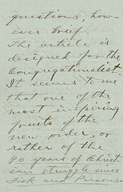 questions, how-
ever brief.
The article is
designed for the
Congregationalist.
It seems to me
that one of the
most inspiring
fruits of the
new order, or
rather of the
90 years of Christ-
ian struggle over
Fisk and Parsons